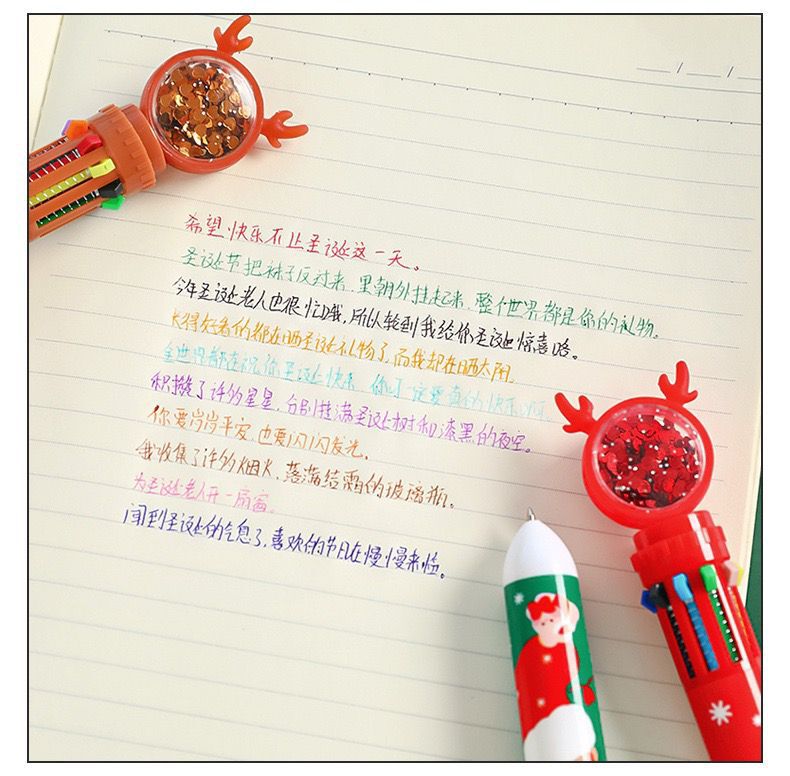 希望快乐不止圣诞这一天。
圣诞节把袜子反过来,里朝外挂起来,整个世界都是你的礼物.
今年圣诞老人也很忙哦,所以轮到我给你圣诞惊喜咯。
长得好看的都在晒圣诞礼物了,而我却在晒太阳.
全世界都在祝你圣诞快乐,你可一定要真的快乐啊.
积攒了许多星星,分别挂满圣诞树和漆黑的夜空。
你要岁岁平安,也要闪闪发光。
我收集了许多烟火,落满结霜的玻璃瓶。
为圣诞老人开一扇窗.
闻到圣诞的气息了,喜欢的节日在慢慢来临。